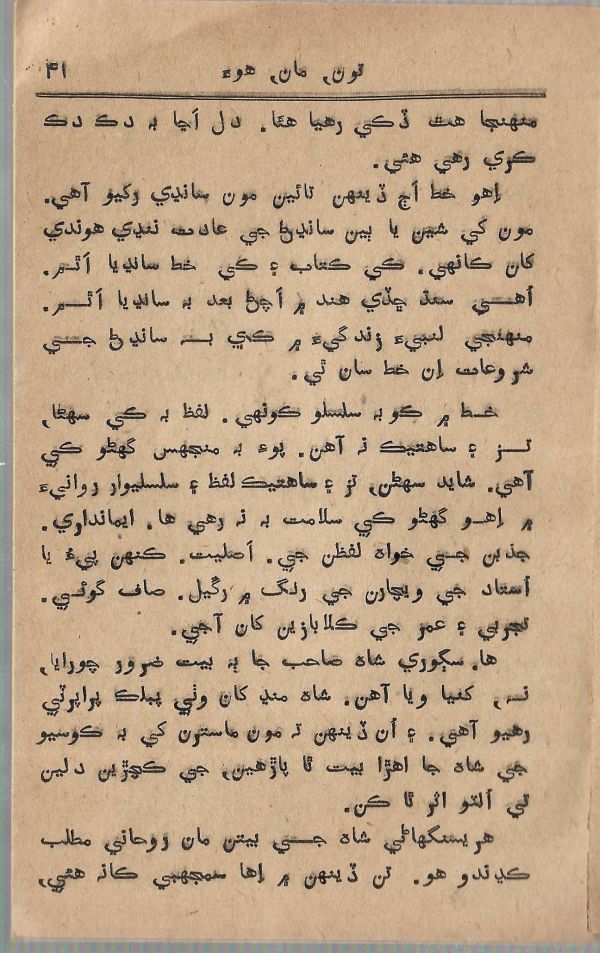 تون, مان, هوءَ ۴۱
منهنجا هٿ ڏڪي رهيا هئا. دل اڃا بہ دڪ دڪ
ڪري رهي هئي.
اِهو خط اڄ ڏينهن تائين مون سانڍي رکيو آهي.
مون کي شين يا ٻين سانڍڻ جي عادت ننڍي هوندي
کان ڪانهي. ڪي ڪتاب ۽ ڪي خط سانڍيا اٿم.
اُهي سنڌ ڇڏي هند ۾ اچڻ بعد بہ سانڍيا اٿم.
منهنجي لنبيءَ زندگيءَ ۾ ڪي بہ سانڍڻ جي
شروعات اِن خط سان ٿي.
خط ۾ ڪو بہ سلسلو ڪونهي. لفظ بہ ڪي سهڻا,
تز ۽ ساهتيڪ نہ آهن. پوءِ بہ منجهس گهڻو ڪي
آهي. شايد سهڻن, تز ۽ ساهتيڪ لفظ ۽ سلسليوار روانيءَ
۾ اِهو گهڻو ڪي سلامت بہ نہ رهي ها. ايمانداري.
جذبن جي خواه لفظن جي. اصليت. ڪنهن پيءُ يا
اُستاد جي ويچارن جي رنگ ۾ رڱيل. صاف گوئي.
تجربي ۽ عمر جي ڪلابازين کان آجي.
ها. سڳوري شاه صاحب جا ٻہ بيت ضرور چورايا,
نہ, کنيا ويا آهن. شاه منڍ کان وٺي پبلڪ پراپرٽي
رهيو آهي. ۽ اُن ڏينهن تہ مون ماسترن کي بہ ڪوسيو
جي شاه جا اهڙا بيت ٿا پاڙهين, جي ڪچڙين دلين
تي اُلٽو اثر ٿا ڪن.
هريسنگهاڻي شاه جي بيتن مان روحاني مطلب
ڪڍندو هو. تن ڏينهن ۾ اِها سمجهبي ڪانہ هئي,